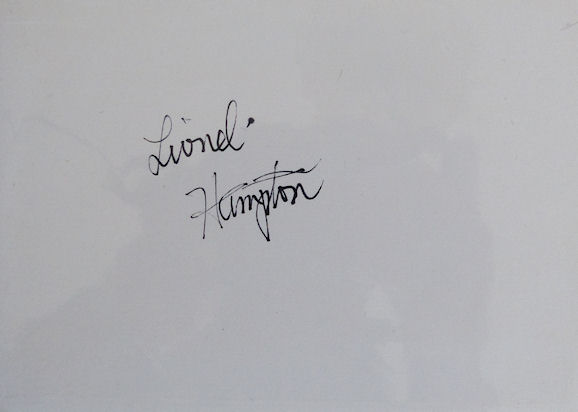 Lionel
Hampton